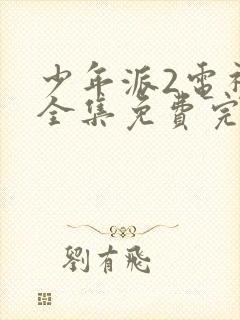 少年派2電視
全集免費完
劉有飛